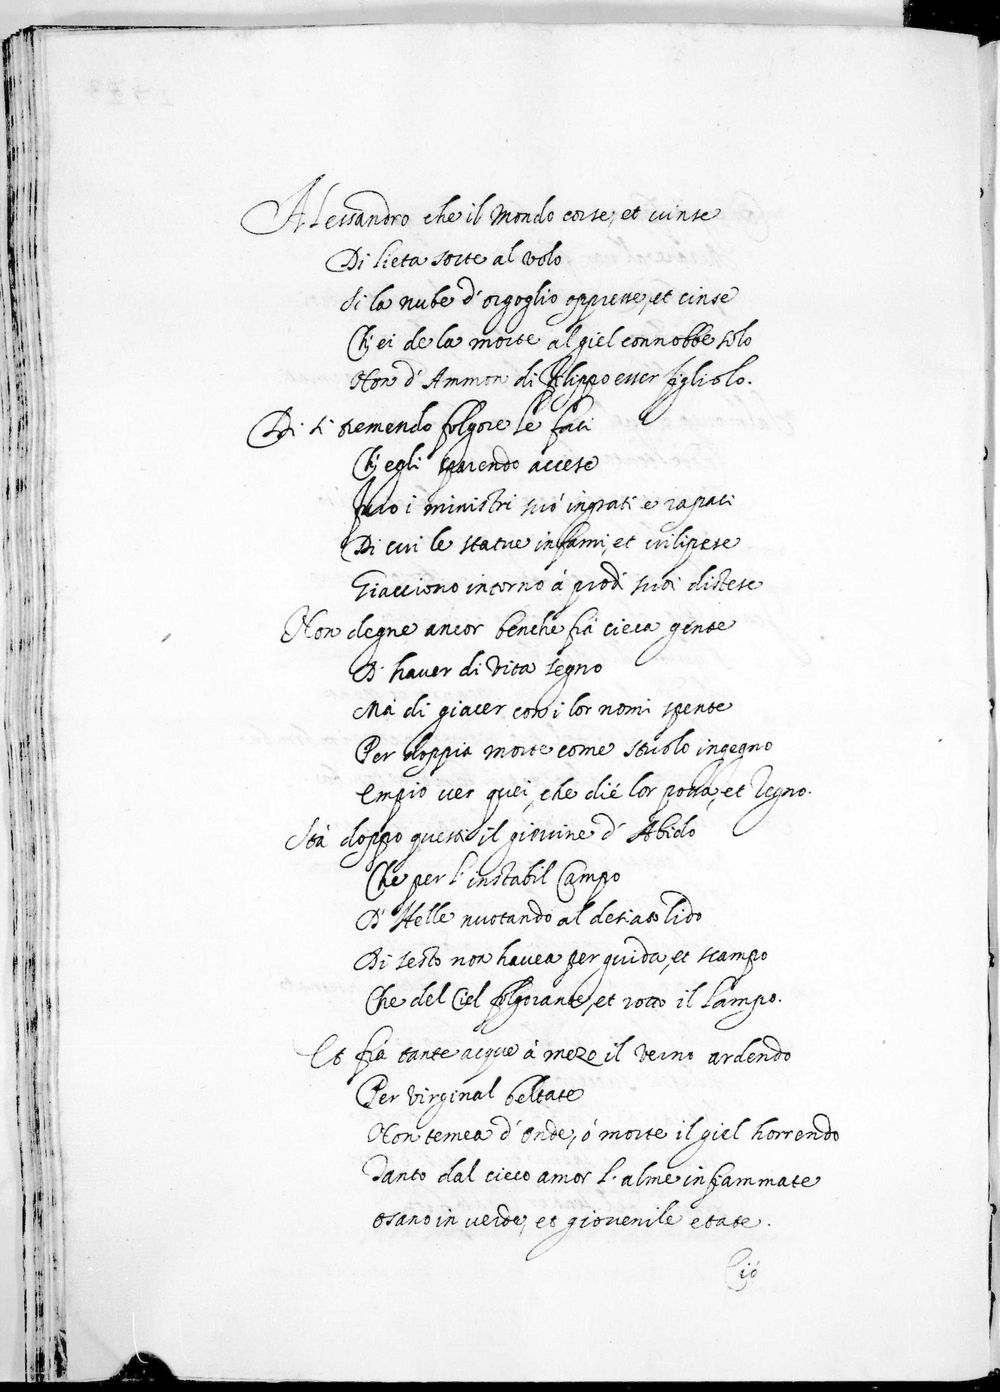 Alessandro che il Mondo corse, et vinse
Di lieta sorte al volo
Si la nube d'orgoglio oppresse, et cinse
Ch'ei de la morte al giel connobbe solo
Non d'Ammon di Filippo esser figliolo.
Di si tremendo folgore le faci
Ch'egli sparendo accese
Furo i ministri suó ingrati e rapaci
Di cui le statue infami, et vilipese
Giacciono intorno á piedi suoi distese
Non degne ancor benche fiá cieca gente
D'haver di vita segno
Má di giacer con i lor nomi spente
Per doppia morte come stuolo ingegno
Empio ver quei, che dié lor possa, et Regno.
Stá doppo questi il giovine d'Abido
Che per l'instabil Campo
D'Helle nuotando al desiato lido
Di sesto non havea per guida, et scampo
Che del Ciel folgorante, et rotto il Lampo.
Et frá tante acque á mezo il verno ardendo
Per virginal beltate
Non temea d'onde, ó morte il giel horrendo
Tanto dal cieco amor l'alme infiammate
Osano in verde, et giovenile etate.
Ció